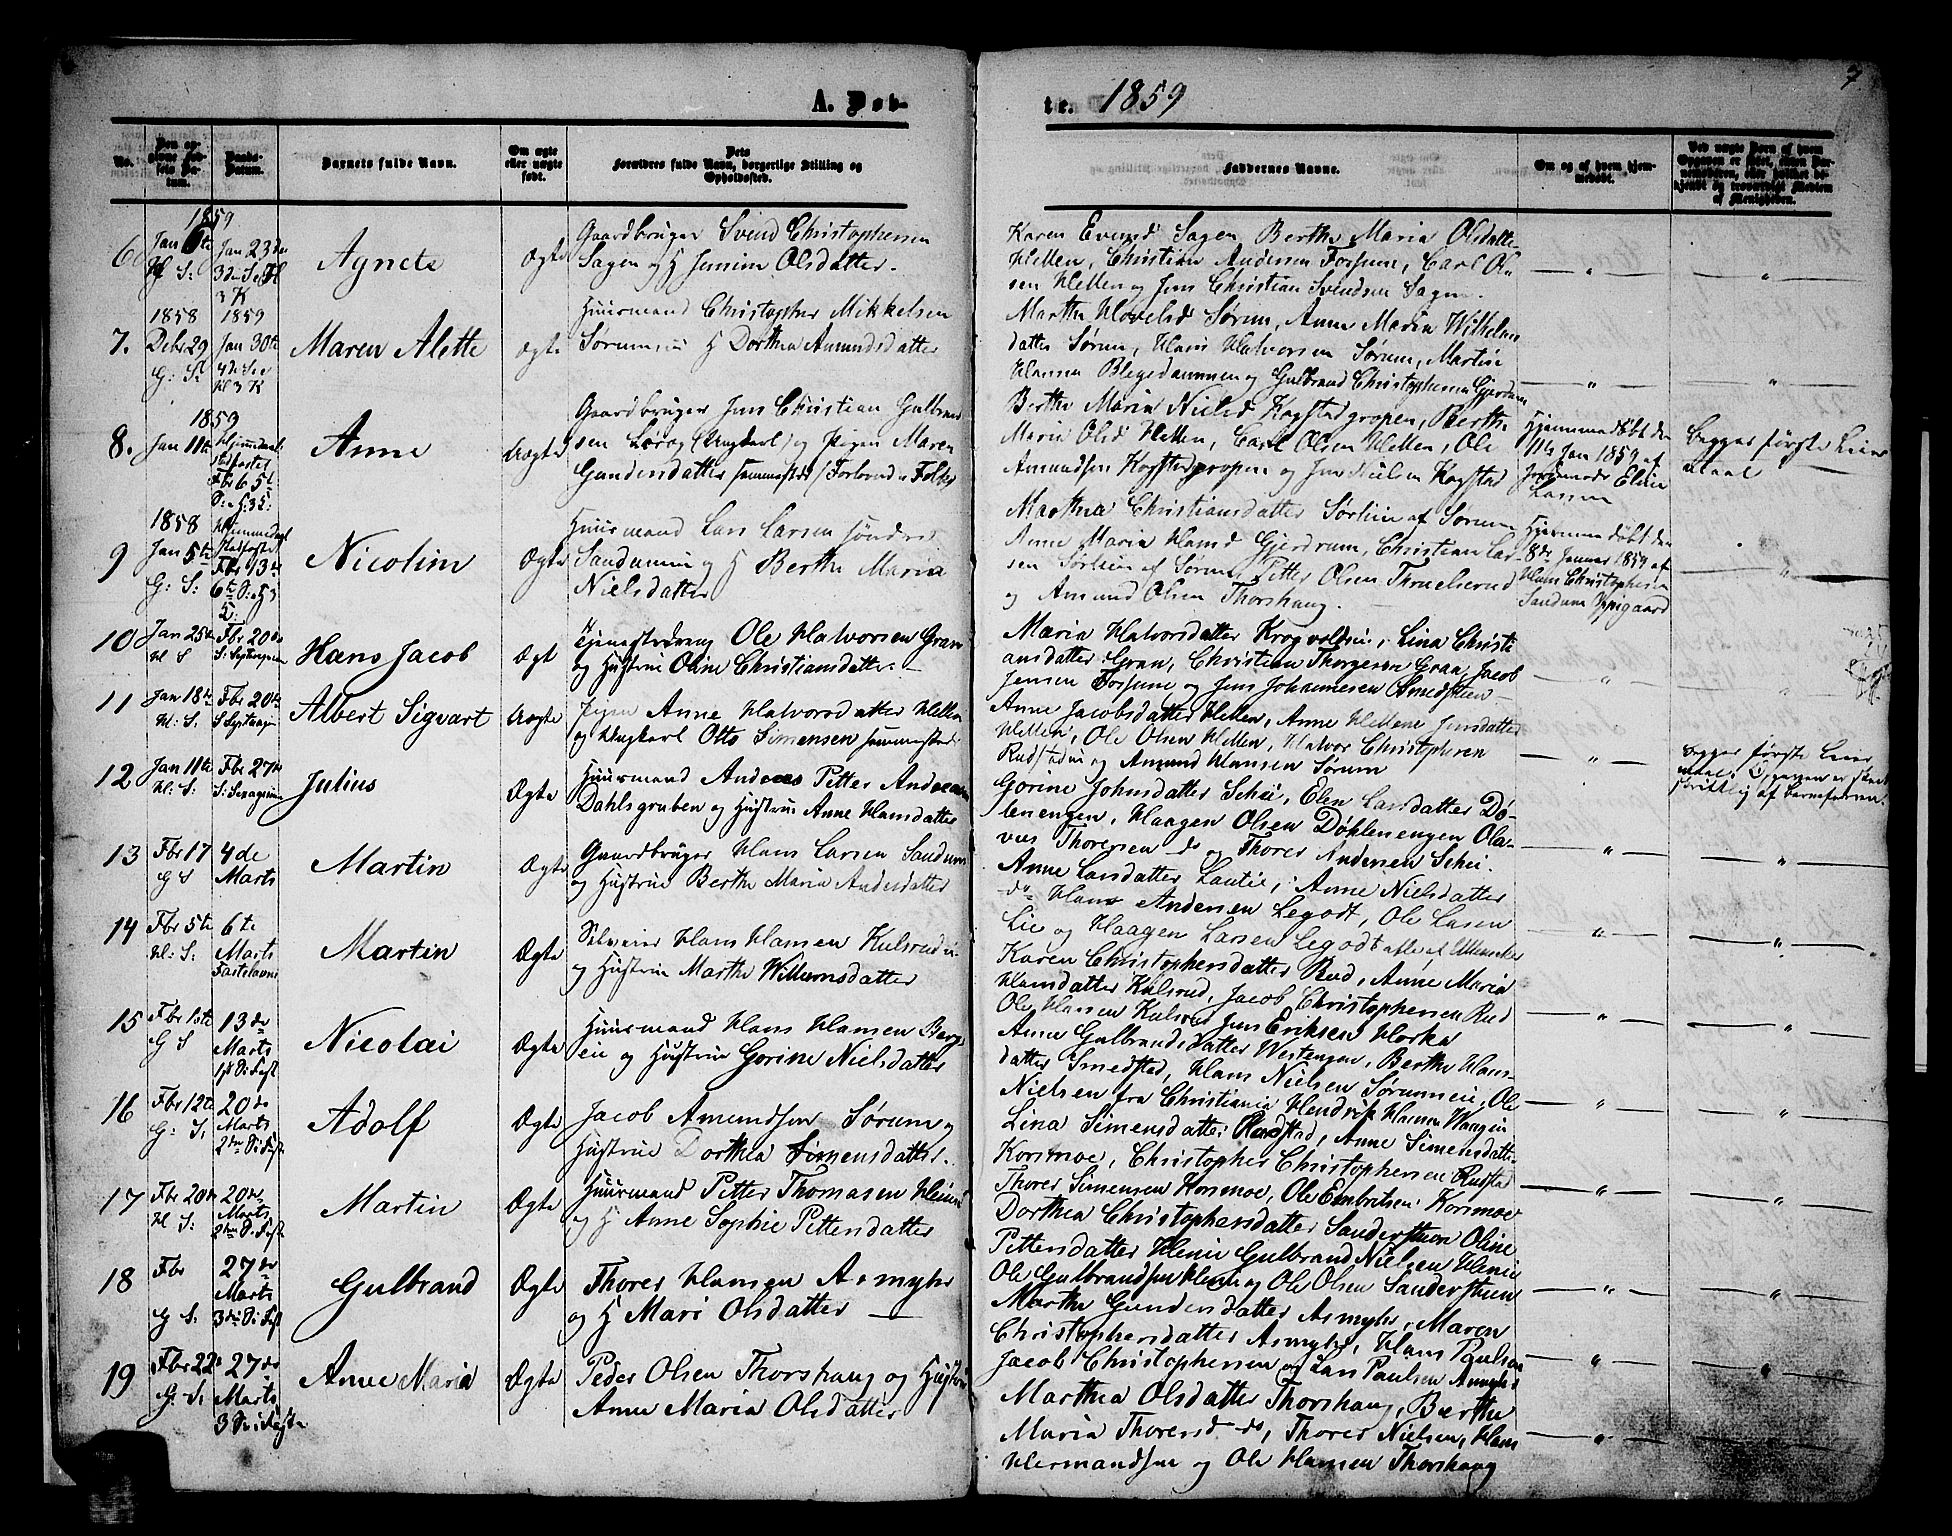 A. Døb-
te. 1859
7
No.
Den opgivne Fødsels Datum.
Daabs-Datum.
Barnets fulde Navn.
Om ægte eller uægte født.
Dets Forældres fulde Navn, borgerlige Stilling og Opholdssted.
Faddernes Navne.
Om og af hvem hjemmedøbt.
Ved uægte Børn af hvem Opgaven er skeet, enten Barnemoderen, eller hvilket bekjendt og troværdigt Medlem af Menigheden.
1859
6 Jan 6te Jan 23de Agnete Ægte
Gaardbruger Svend Christophersen
Sagen og H Jensine Olsdatter.
Karen Evensd Sagen Berthe Maria Olsdatter
Hellen, Christian Andersen Fossum, Carl Ol-
sen Hellen og Jens Christian Svendsen Sagen.
1858 1859
7. Debr 29 Jan 30te Maren Alette Ægte
G: S:
Huusmand Christopher Mikkelsen
Sørumseie H Dorthea Amundsdatter
Marthe Hovelsd Sørum, Anne Maria Wilhelm
datter Sørum, Hans Halvorsen Sørum, Martin
Hansen Blegedammen og Gulbrand Christophersen Gjerdrum
1859
8. Jan 11te Fbr 6 Anne Uægte
Gaardbruger Jens Christian Gulbrand
sen Lørog (Ungkarl) og Pigen Maren
Gundersdatter sammesteds
Berthe Maria Nielsd Kogstadgropen, Berthe
Maria Olsd Hellen, Carl Olsen Hellen, Ole
Amundsen Kogstadgropen og Jens Nielsen Kogstad
Hjemmedøbt den
11te Jan 1859 af
Jordemoder Eline
Larsen
Begges første Leier
maal
1858
9 Jan 5te Fbr 13de Nicoline Ægte
G: S:
Huusmand Lars Larsen søndre
Sandumeie og H Berthe Maria
Nielsdatter
Marthea Christiansdatter Sørlien af Sørum
Anne Maria Hansd Gjerdrum, Christian Lar
sen Sørlien af Sørum, Petter Olsen Thruelsrud
og Amund Olsen Thorshaug.
Hjemmedøbt den
8de Januar 1859 af
Hans Christophersen
Sandum
10 Jan 25te Fbr 20de Hans Jacob Ægt
Tjenestedreng Ole Halvorsen Gran
og Hustrue Oline Christiansdatter.
Maria Halvorsdatter Krogvoldeie, Lina Christi
ansdatter Gran, Christian Thorgersen Gran, Jacob
Jensen Fossum og Jens Johannesen Smedstuen
11 Jan 18de Fbr 20de Albert Sigvart Uægte
Pigen Anne Halvorsdatter Hellen
og Ungkarl Otto Simensen sammesteds
Anne Jacobsdatter Hellen, Anne Hellene Jensdatter
Hellen, Ole Olsen Hellen, Halvor Christophersen
Rudstadeie og Amund Hansen Sørum
Begges første Leier
maal. Opgaven er skeet
skriftlig af Barnefaderen.
12 Jan 11te Fbr 27de Julius Ægte
Huusmand Andreas Petter Andersen
Dahlsgruben og Hustrue Anne Hansdatter
Gorine Johnsdatter Schei, Elen Larsdatter Dø-
lenengen, Haagen Olsen Døhlenengen Ola-
vus Thoresen do og Thores Andersen Schei.
13 Fbr 17 4de Marts Martin Ægte
G S
Gaardbruger Hans Larsen Sandum
og Hustrue Berthe Maria Andersdatter
Anne Larsdatter Lautie, Anne Nielsdatter
do Hans Andersen Legodt, Ole Larsen
Lie og Haagen Larsen Legodt alle af Ullensaker
14 Fbr 5te 6te Marts Fastelavns Martin Ægte
Selveier Hans Hansen Kulsrud
og Hustrue Marthe Willumsdatter
Karen Christophersdatter Rud, Anne Maria
Hansdatter Kulsrud, Jacob Christophersen Rud
Ole Hansen Kulsrud Jens Eriksen Horke
15 Fbr 13de Marts Nicolai Ægte
G S
Huusmand Hans Hansen Berg
eie og Hustrue Gorine Nielsdatter
Anne Gulbrandsdatter Westengen, Berthe Hans-
datter Smedstad, Hans Nielsen Sørumeie, Ole
Nielsen fra Christiania Hendrik Hansen Haagen
16 Fbr 12te 20de Marts Adolf Ægte
G: S:
Jacob Amundsen Sørum og
Hustrue Dorthea Simensdatter.
Lina Simensdatter Rudstad, Anne Simensdatter
Korsmoe, Christopher Christophersen Rudstad
Thores Simensen Korsmoe, Ole Embritsen Korsmoe
17 Fbr 20de 20de Marts Martin Ægte
Huusmand Petter Thomasen Henie
og H Anne Sophie Pettersdatter
Dorthea Christophersdatter Sanderstuen Oline
Pettersdatter Henie Gulbrand Nielsen Henie
Ole Gulbrandsen Henie og Ole Olsen Sanderstuen
18 Fbr 27de Marts Gulbrand Ægte
G S.
Thores Hansen Asmyhr
og H Mari Olsdatter
Marthe Gundersdatter Asmyhr, Maren
Christophersdatter Asmyhr, Hans Paulsen
Jacob Christophersen og Lars Paulsen Asmyhr
19 Fbr 22de 27de Marts Anne Maria Ægte
G: S:
Peder Olsen Thorshaug og Hustrue
Anne Maria Olsdatter
Marthea Olsdatter Thorshaug, Berthe
Maria Thoresd do, Thores Nielsen, Hans
Hermandsen og Ole Hansen Thorshaug